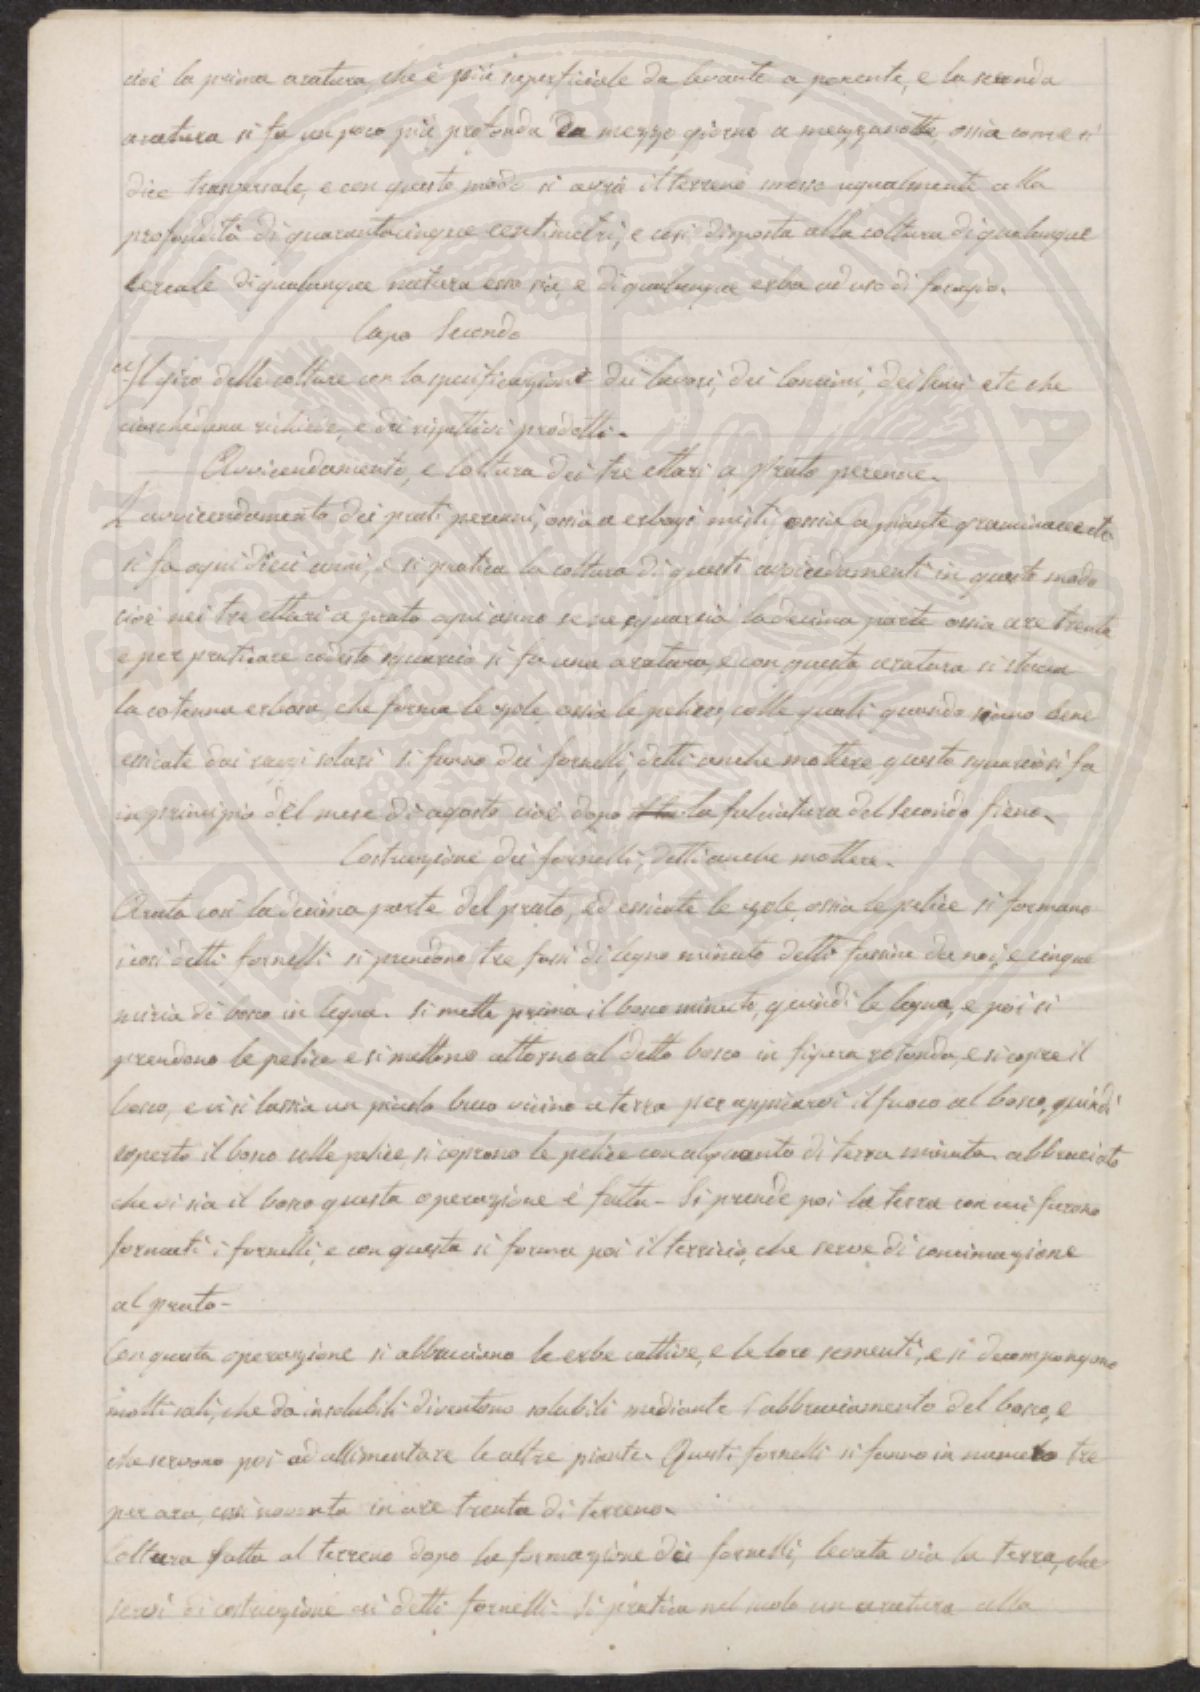 cioè la prima aratura, che è più superficiale da levante a ponente, e la seconda
aratura si fa un poco più profonda da mezzo giorno a mezzanotte, ossia come si
dice trasversale, e con questo modo si avrà il terreno smosso ugualmente alla
profondità di quarantacinque centimetri, e così disposta alla coltura di qualunque
cereale di qualunque natura esso sia, e di qualunque erba ad uso di foragio.
Capo Secondo
a) Il giro delle colture con la specificazione dei lavori, dei concimi, dei semi etc che
ciascheduna richiede, e dei rispettivi prodotti.
Avvicendamento, e coltura dei tre ettari a prato perenne.
L'avvicendamento dei prati perenni, ossia a erbagi misti, ossia a piante graminacee etc
si fa ogni dieci anni, e si pratica la coltura di questi avvicedamenti in questo modo
cioè nei tre ettari a prato ogni anno se ne squarcia la decima parte ossia are trenta,
e per praticare codesto squarcio si fa una aratura, e con questa aratura si stacca
la cotenna erbosa che forma le zole, ossia le pelize, colle quali quando siano bene
essicate dai raggi solari si fanno dei fornelli, detti anche mottere, questo squarcio si fa
in principio del mese di agosto cioè dopo la falciatura del secondo fieno.
Costruzione dei fornelli, detti anche mottere.
Arata così la decima parte del prato, ed essicate le zole, ossia le pelize si formano
i così detti fornelli si prendono tre fassi di legno minuto detti fassine da noi, e cinque
miria di bosco in legna. Si mette prima il bosco minuto, quindi le legna, e poi si
prendono le pelize e si mettono attorno al detto bosco in figura rotonda, e si copre il
bosco, e vi si lascia un piccolo buco vicino a terra per appicarvi il fuoco al bosco, quindi
coperto il bosco colle pelize, si coprono le pelize con alquanto di terra minuta. abbruciato
che vi sia il bosco questa operazione è fatta. Si prende poi la terra con cui furono
formati i fornelli, e con questa si forma poi il terricio, che serve di concimazione
al prato.
Con questa operazione si abbruciano le erbe cattive, e le loro sementi, e si decompongono
molti sali, che da insolubili diventono solubili mediante l'abbruciamento del bosco, e
che servono poi ad allimentare le altre piante. Questi fornelli si fanno in numero tre
per ara, così novanta in are trenta di terreno.
Coltura fatta al terreno dopo la formazione dei fornelli, levata via la terra, che
servì di costruzione ai detti fornelli. Si pratica nel suolo un aratura alla